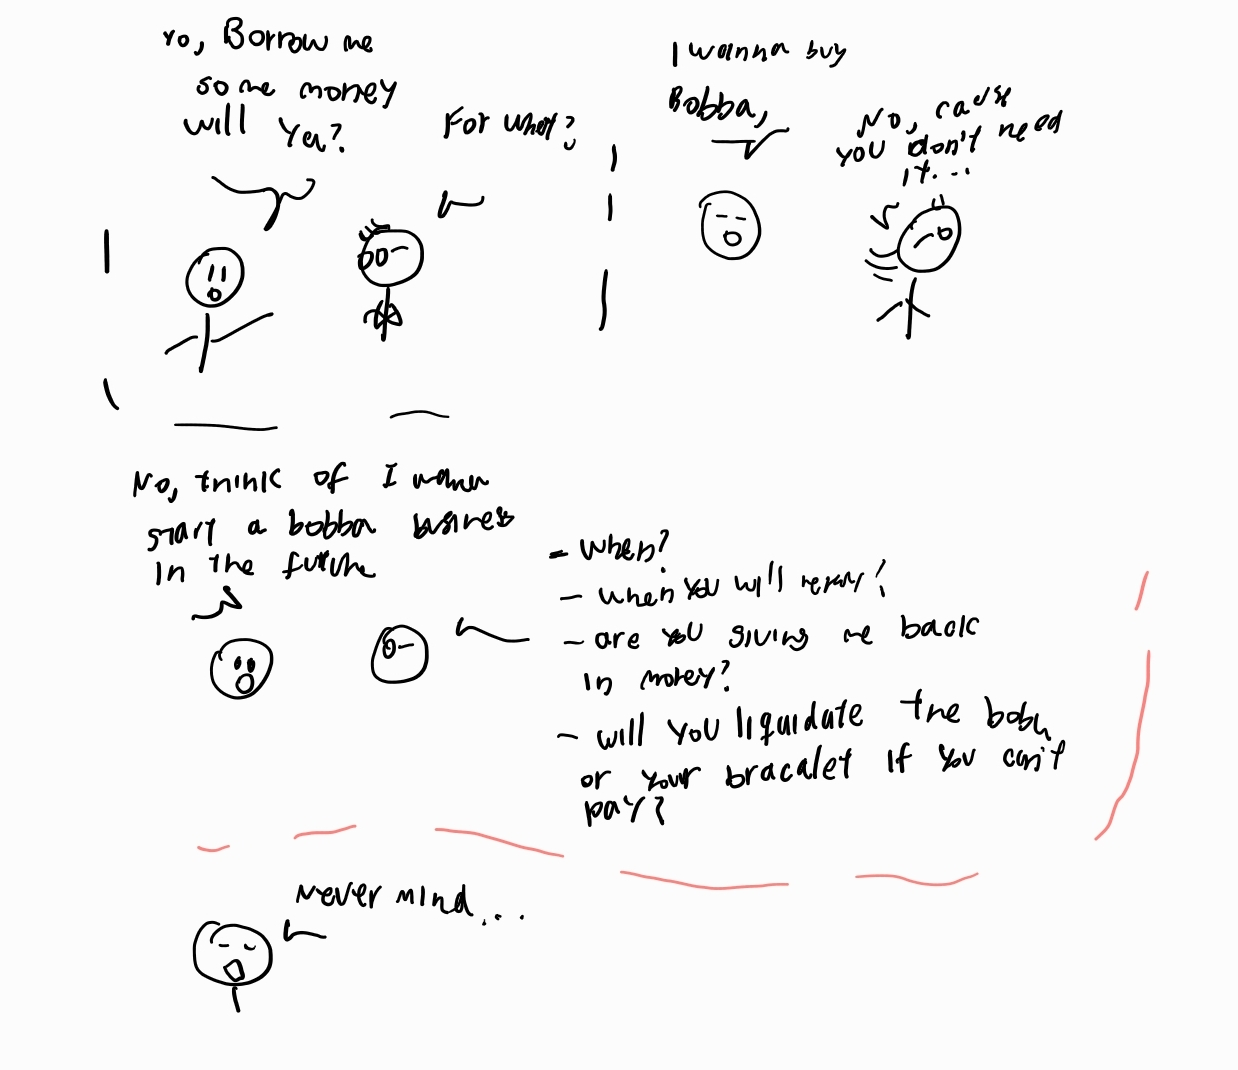 Yo, Borrow me
some money
will Ya?
For what?
I wanna buy
Bobba,
No, cause
you don't need
it...
No, think of I wanna
start a bobba business
in the future
- when?
- when you will repay?
- are you giving me back
in money?
- will you liquidate the
or your bracalet if you can't
pay?
Never mind...